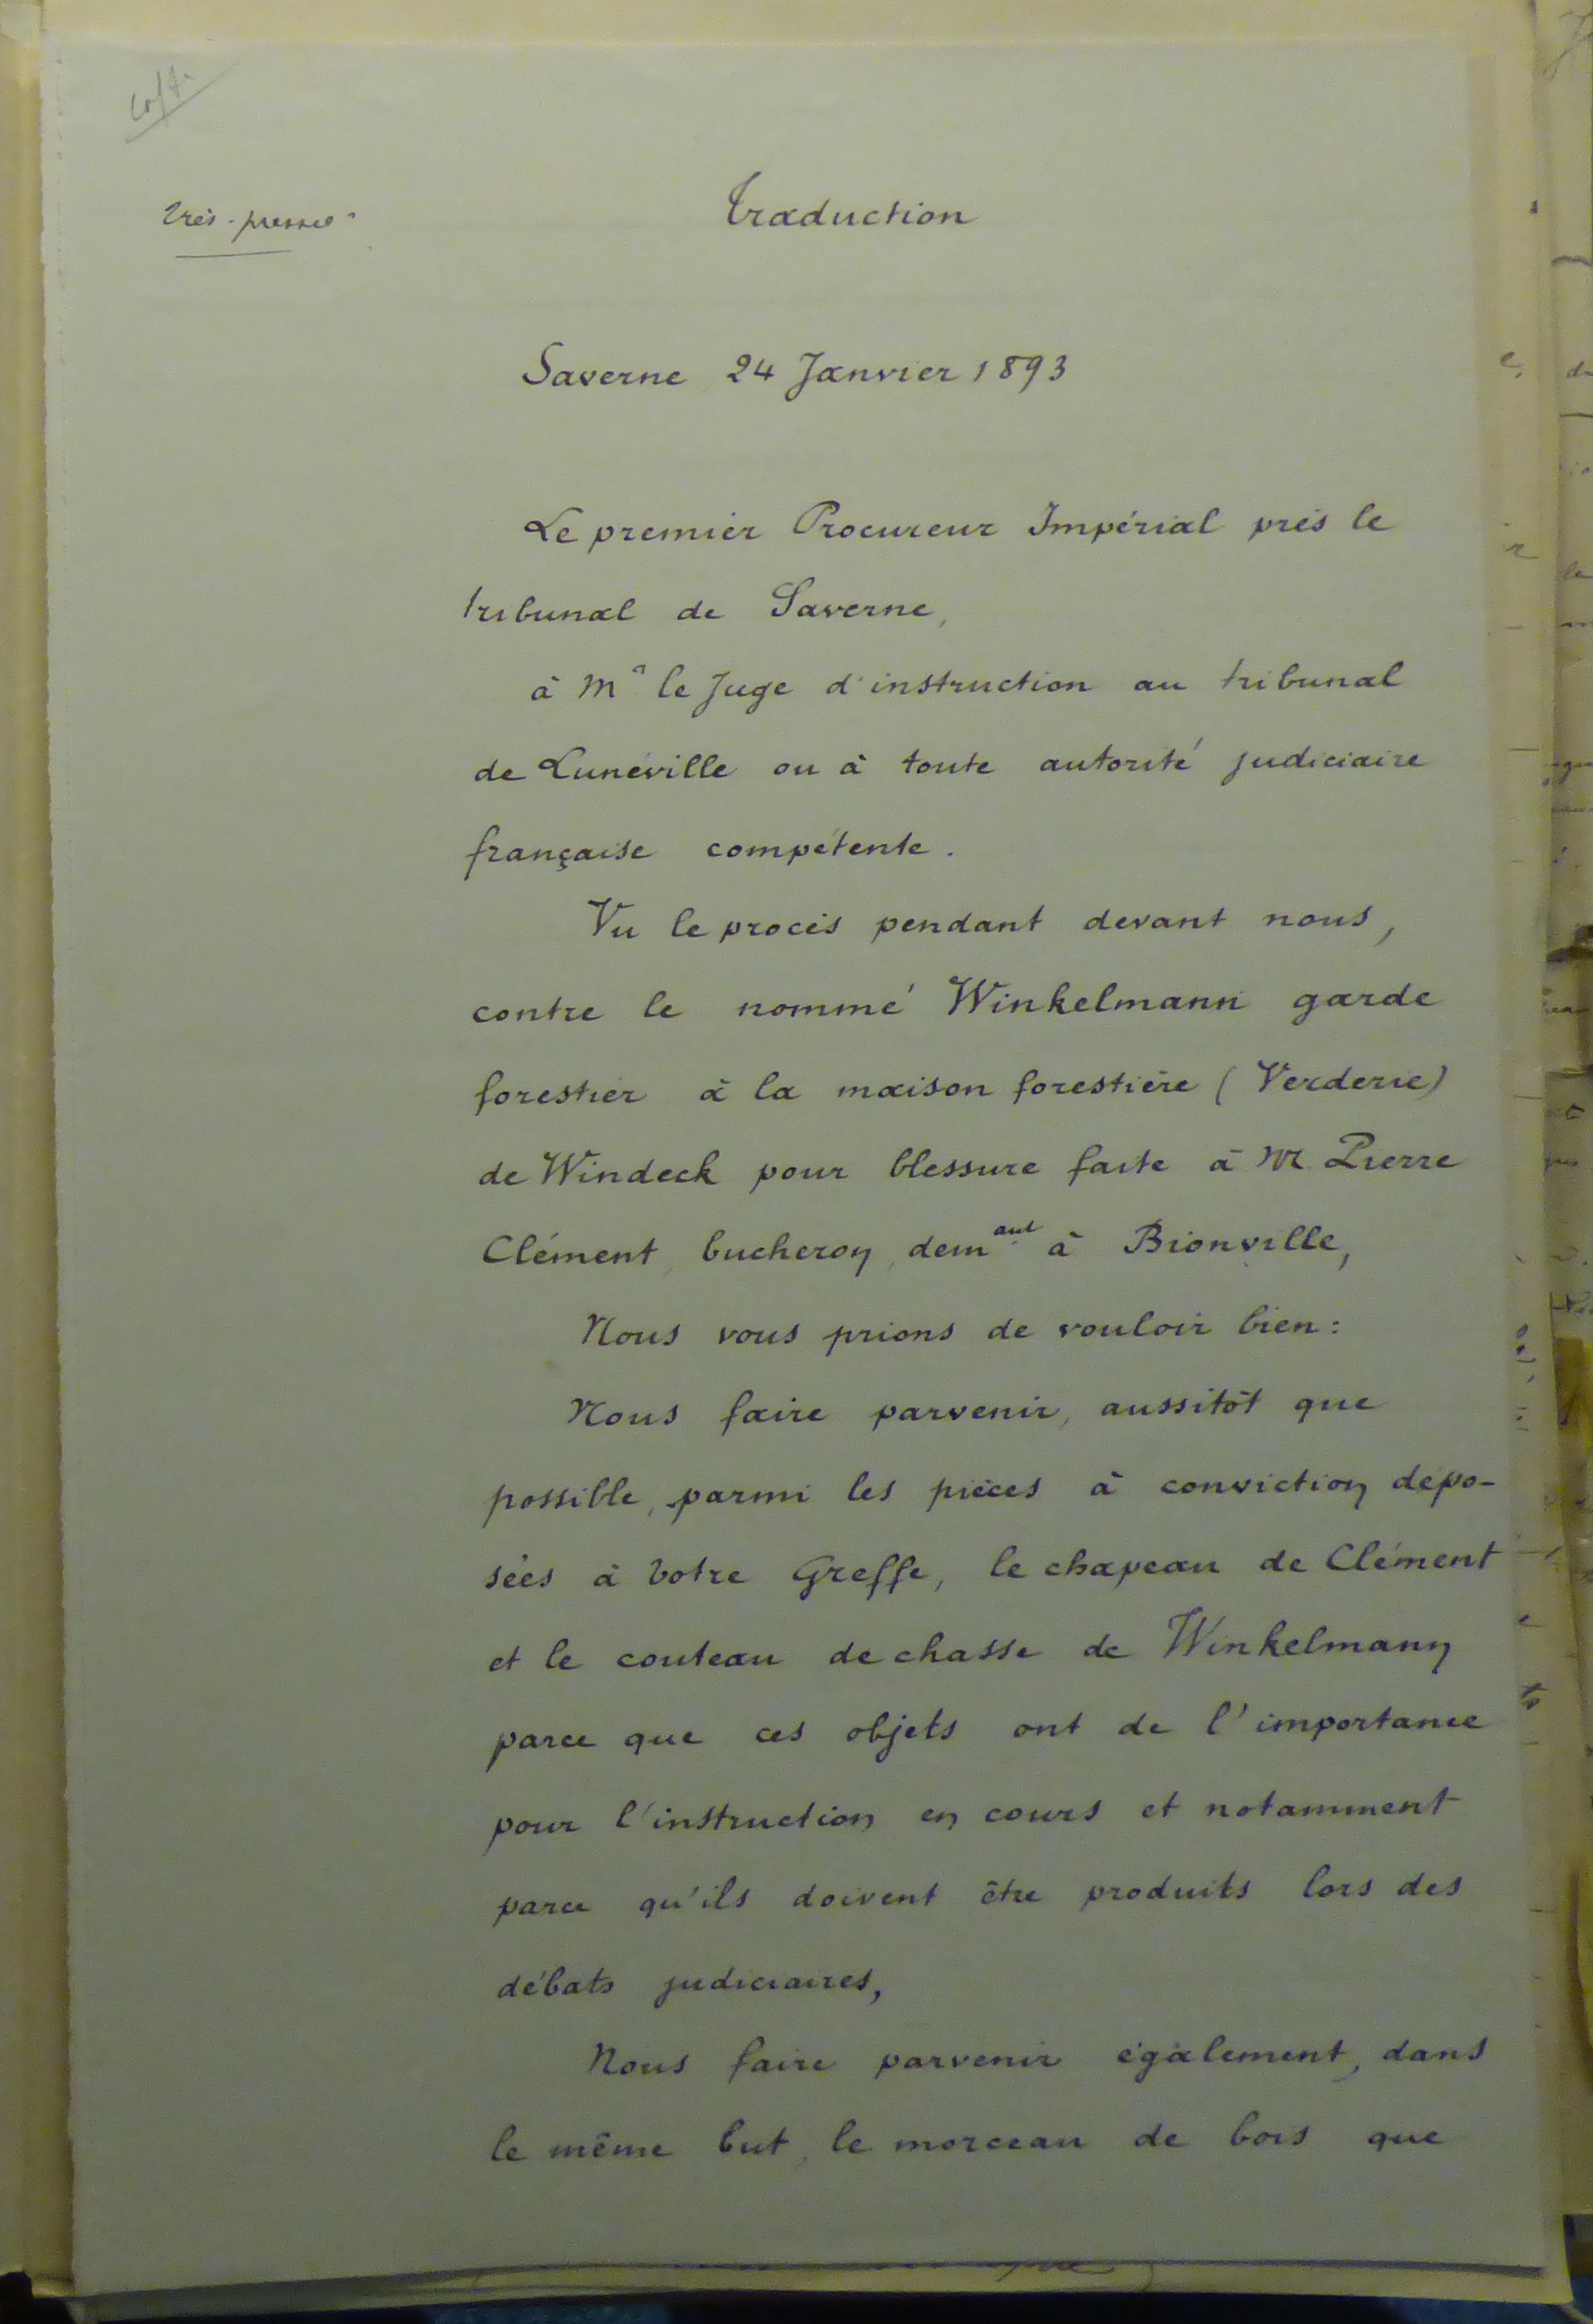 Très-pressé
Traduction
Saverne 24 Janvier 1893
Le premier Procureur Impérial près le
tribunal de Saverne,
à Mr le Juge d'instruction au tribunal
de Lunéville ou à toute autorité judiciaire
française compétente.
Vu le procès pendant devant nous,
contre le nommé Winkelmann garde
forestier à la maison forestière (Verderie)
de Windeck pour blessure faite à M. Pierre
Clément, bucheron, demant à Bionville,
Nous vous prions de vouloir bien :
Nous faire parvenir, aussitôt que
possible, parmi les pièces à conviction dépo-
sées à votre Greffe, le chapeau de Clément
et le couteau de chasse de Winkelmann
parce que ces objets ont de l'importance
pour l'instruction en cours et notamment
parce qu'ils doivent être produits lors des
débats judiciaires,
Nous faire parvenir également, dans
le même but, le morceau de bois que